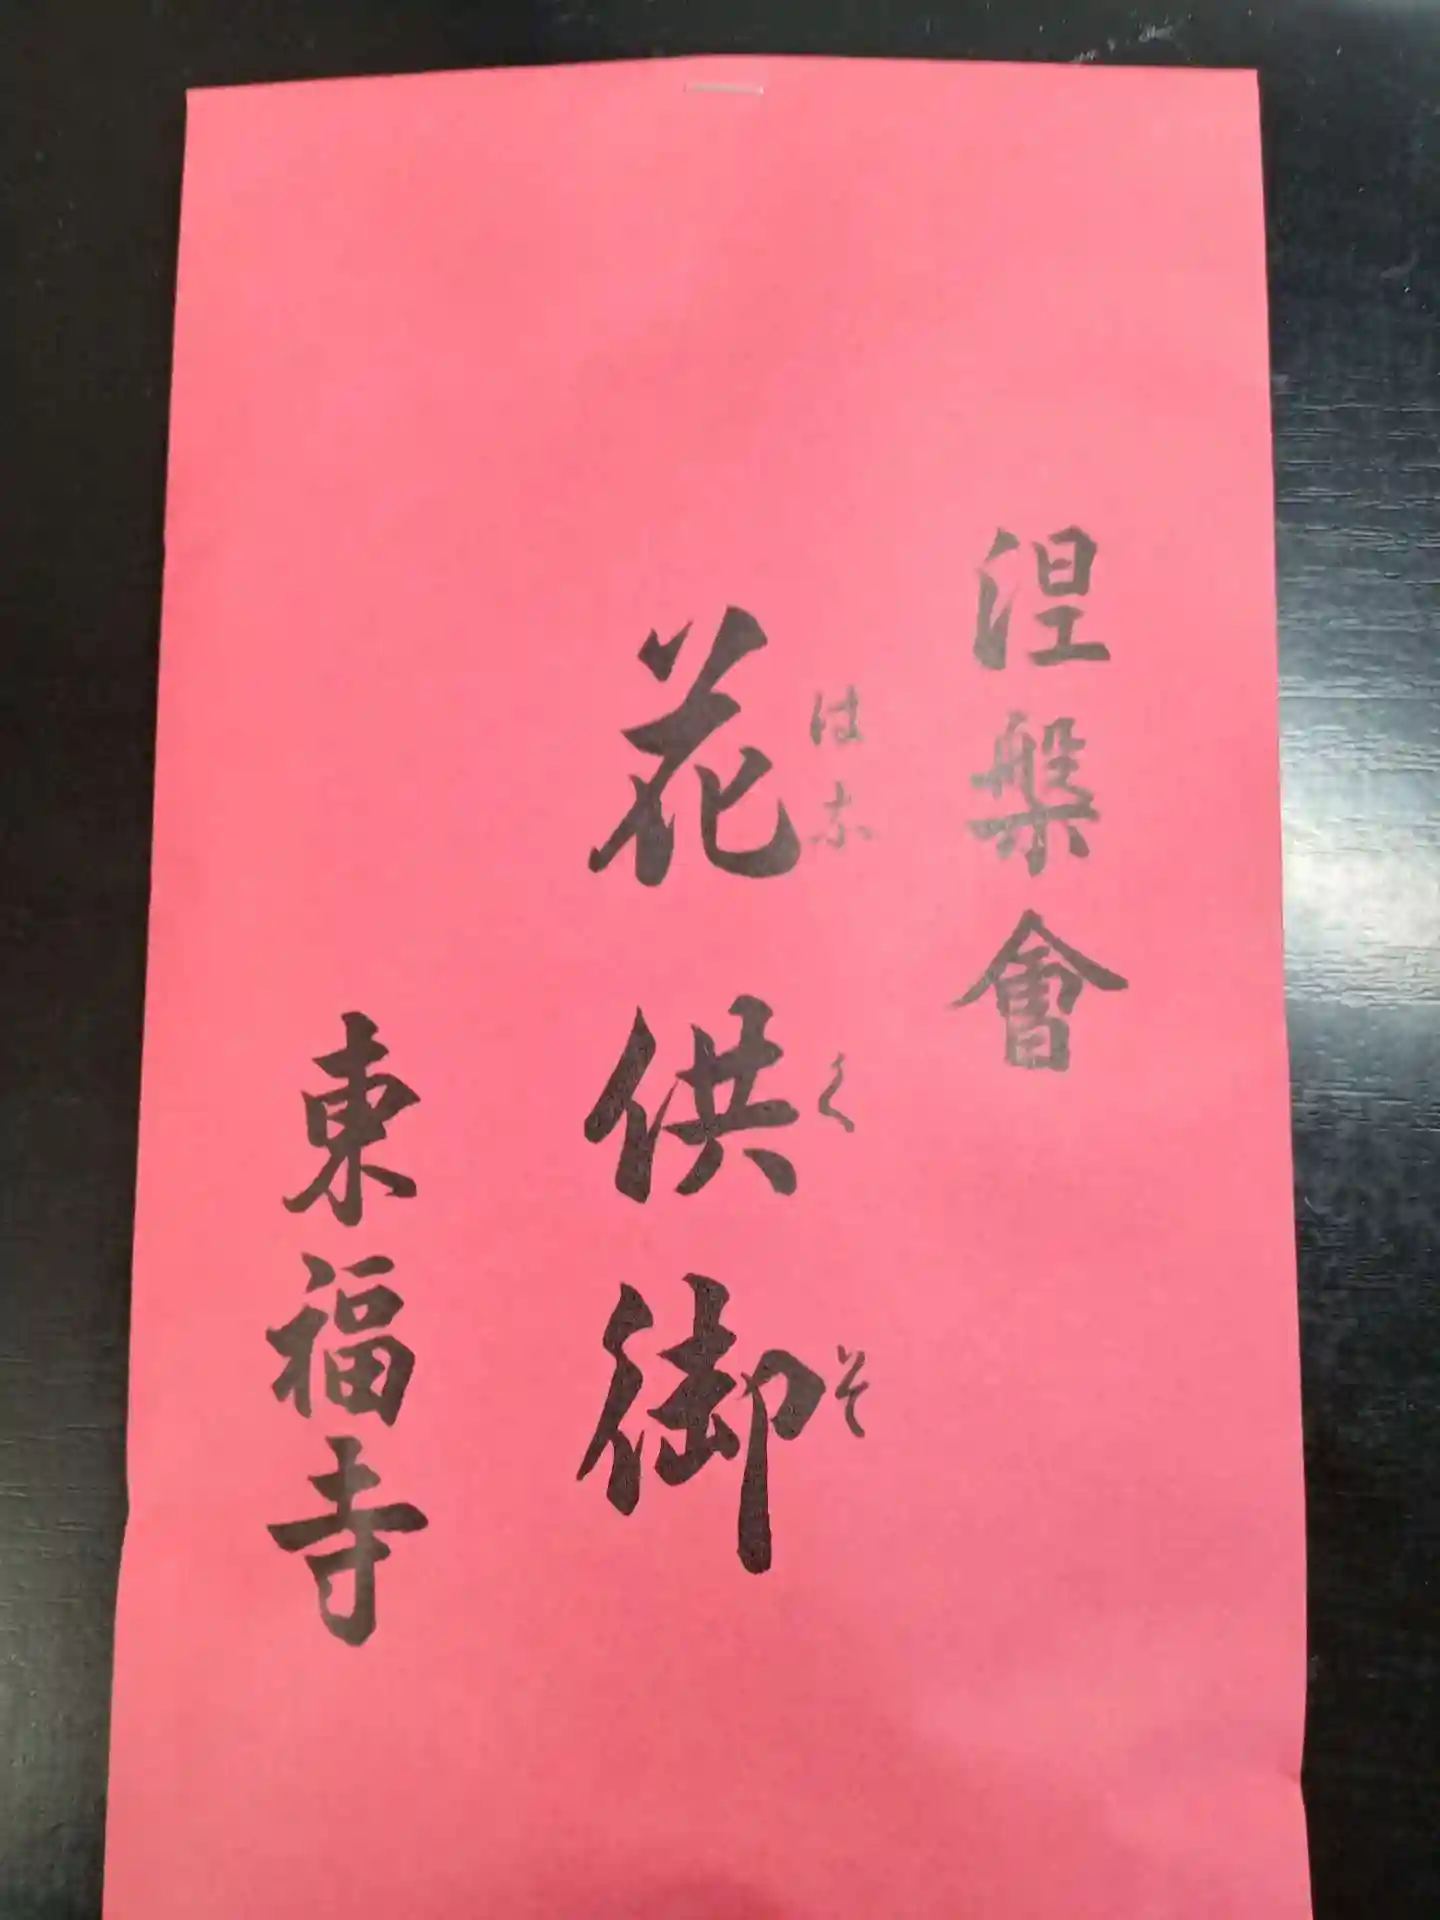 涅槃會
花供御
はな
く
そ
東福寺